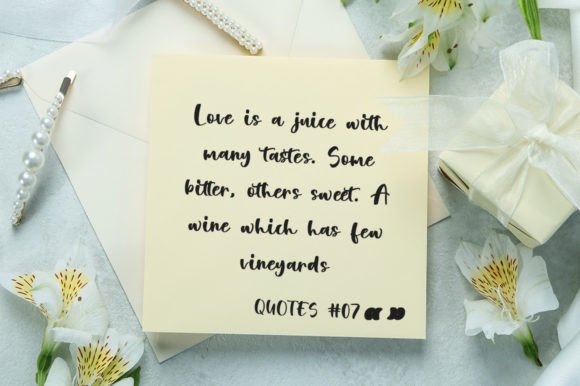 Love is a juice with
many tastes. Some
bitter, others sweet. A
wine which has few
vineyards
QUOTES #07 “ ”